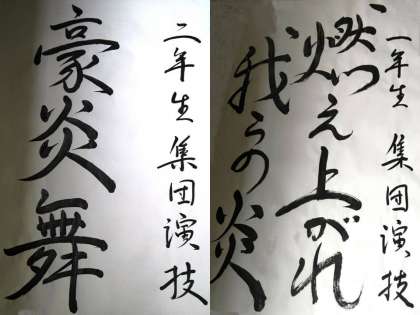 一年生 集団演技
燃え上がれ
我らの炎
二年生 集団演技
豪炎舞